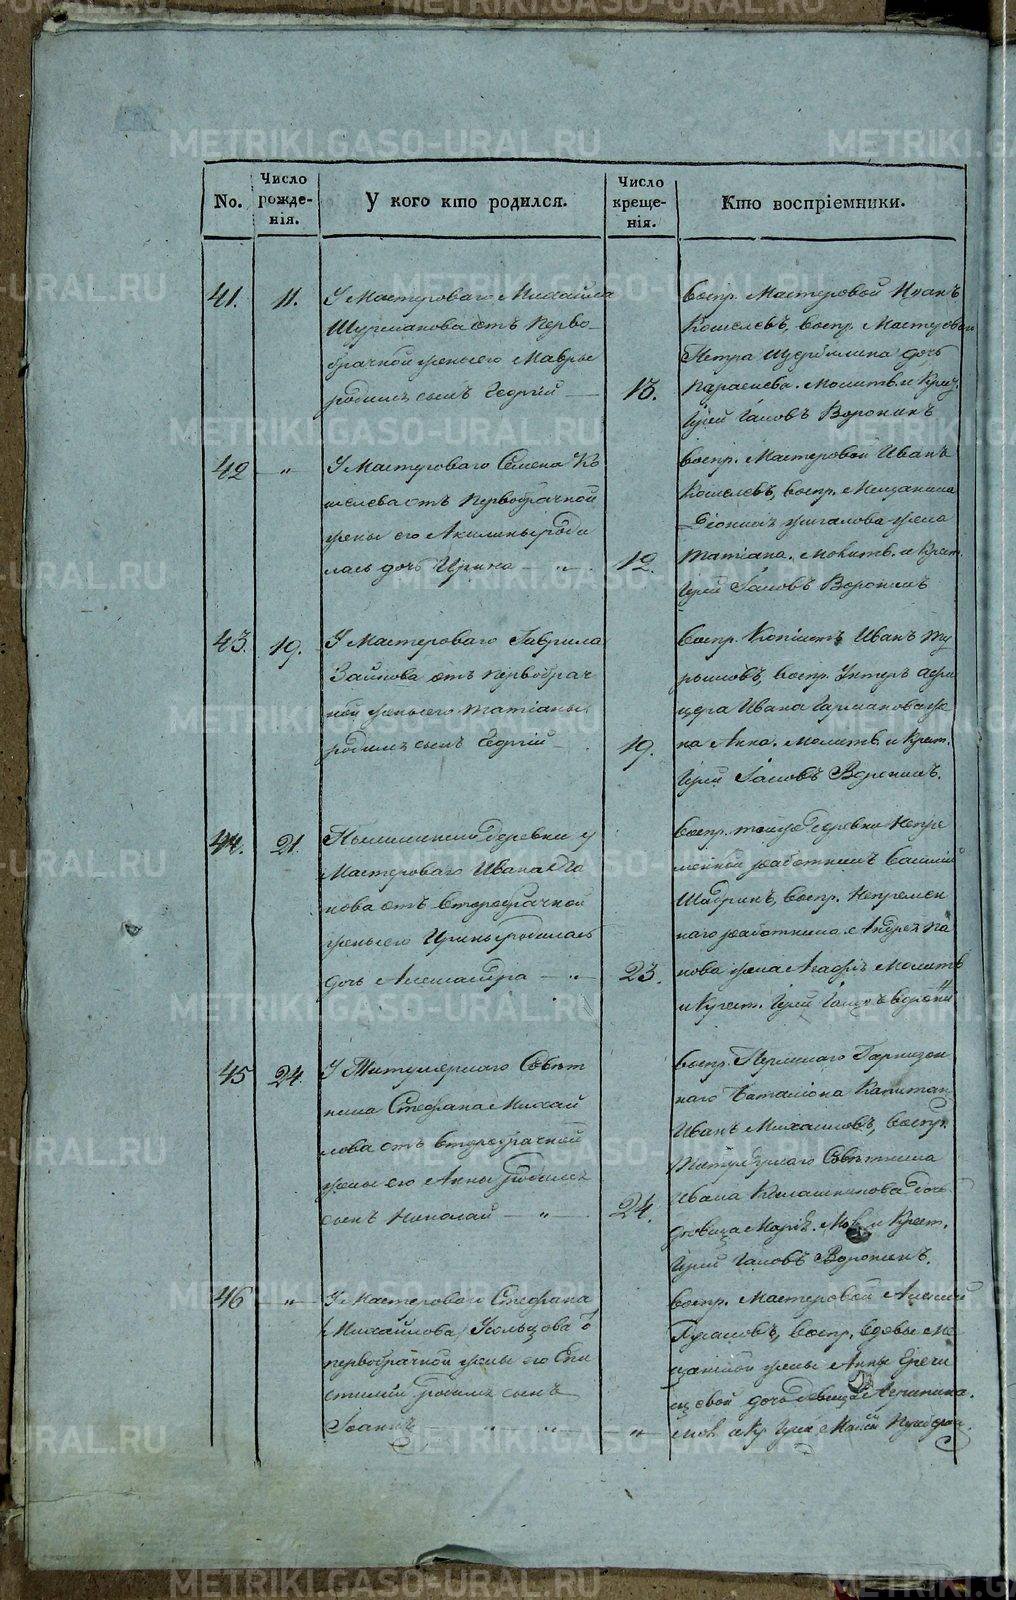 No.
Число рожде-нія.
У кого кто родился.
Число креще-нія.
Кто воспріемники.
41.
11.
У Мастероваго Михайла
отъ перво-
брачной жены его Мавры
родился сынъ Георгій
13.
Воспр. Мастеровой Иванъ
Кошелевъ, воспр. Мастероваго
Петра дочь
Молитв. и Крест.
Іерей Іаковъ Воронинъ
42
"
У Мастероваго Семена Ко
шелева отъ первобрачной
жены его Акилины роди
лась дочь Ирина
12.
воспр. Мастеровой Иванъ
Кошелевъ, воспр. Мещанина
Діонисія Жигалова жена
Татіана. Молитв. и Крест.
Іерей Іаковъ Воронинъ
43.
19.
У Мастероваго Гаврила
Заикова отъ первобрач
ной жены его Татіаны
родился сынъ Георгій
19.
воспр. Копіистъ Иванъ
воспр. Унтеръ Офи
цера Ивана же
на Анна. Молитв. и Крест.
Іерей Іаковъ Воронинъ.
44.
21.
деревни у
Мастероваго Ивана Па
нова отъ второбрачной
жены его Ирины родилась
дочь Александра
23.
воспр. тойже деревни Непре
менной работникъ Василій
Шадринъ, воспр. Непремен
наго работника Андрея Па
нова жена Агафія Молитв
и Крест. Іерей Іаковъ Воронин
45
24.
У Титулярнаго Совѣт
ника Стефана Михай
лова отъ второбрачной
жены его Анны родился
сынъ Николай
24.
воспр. Пермскаго Гарнизон
наго Баталіона Капитан
Иванъ Михайловъ, воспр.
Титулярнаго Совѣтника
Ивана Калашникова дочь
девица Марія. Мол. и Крест.
Іерей Іаковъ Воронинъ.
46
"
У Мастероваго Стефана
Михайлова Усольцова о
первобрачной жены его
родился сынъ
Іоаннъ
"
воспр. Мастеровой Алексій
воспр. вдовы Ме
щанской жены Анны
дочь девица
Мол. и Кр. Іерей
METRIKI.GASO-URAL.RU